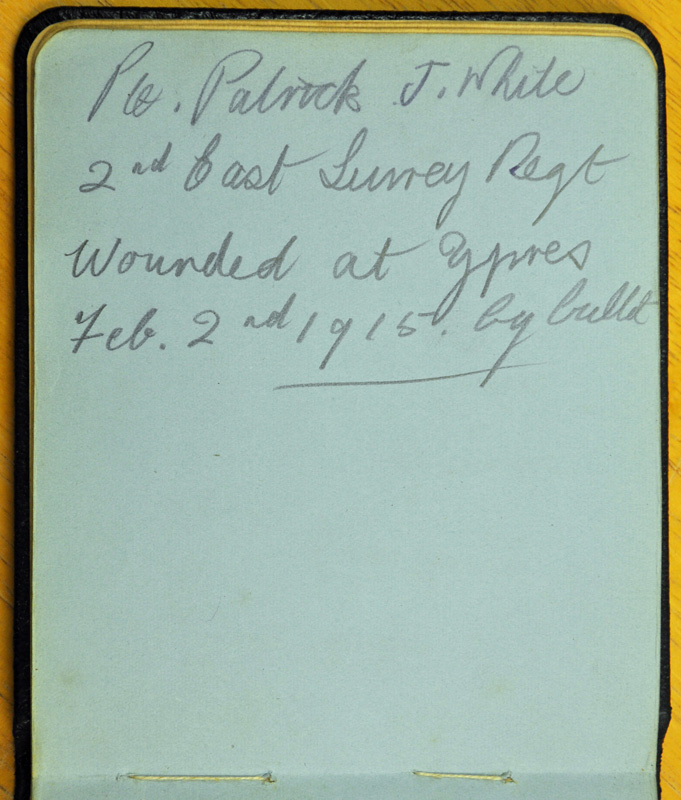 Pte. Patrick J. White
2nd East Surrey Regt
Wounded at Ypres
Feb. 2nd 1915. by bullet